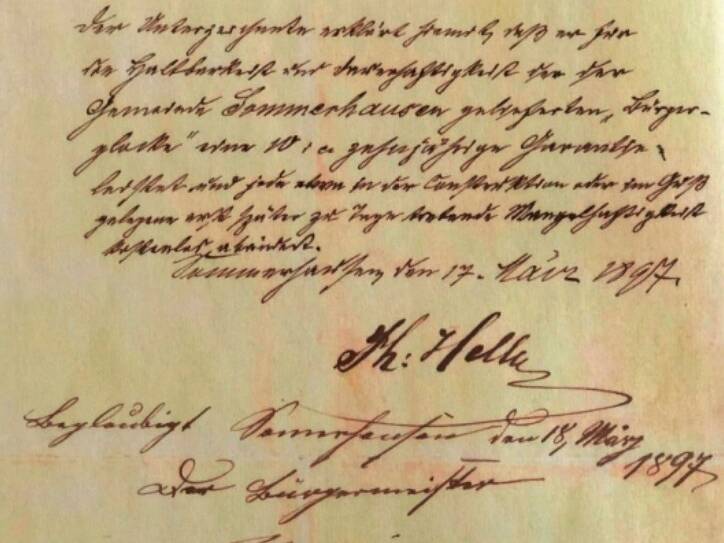 Der Unterzeichnete erklärt hiemit, daß er für
die Haltbarkeit und Dauerhaftigkeit der der
Gemeinde Sommerhausen gelieferten „Bürger-
glocke“ eine 10 i. e. zehnjährige Garantie
leistet und jede etwa in der Construktion oder im Guß
gelegene erst später zu Tage tretende Mangelhaftigkeit
kostenlos abändert.
Sommerhausen, den 17. März 1897.
Th: Heller
Beglaubigt Somerhausen den 18, März
1897
Der Bürgermeister